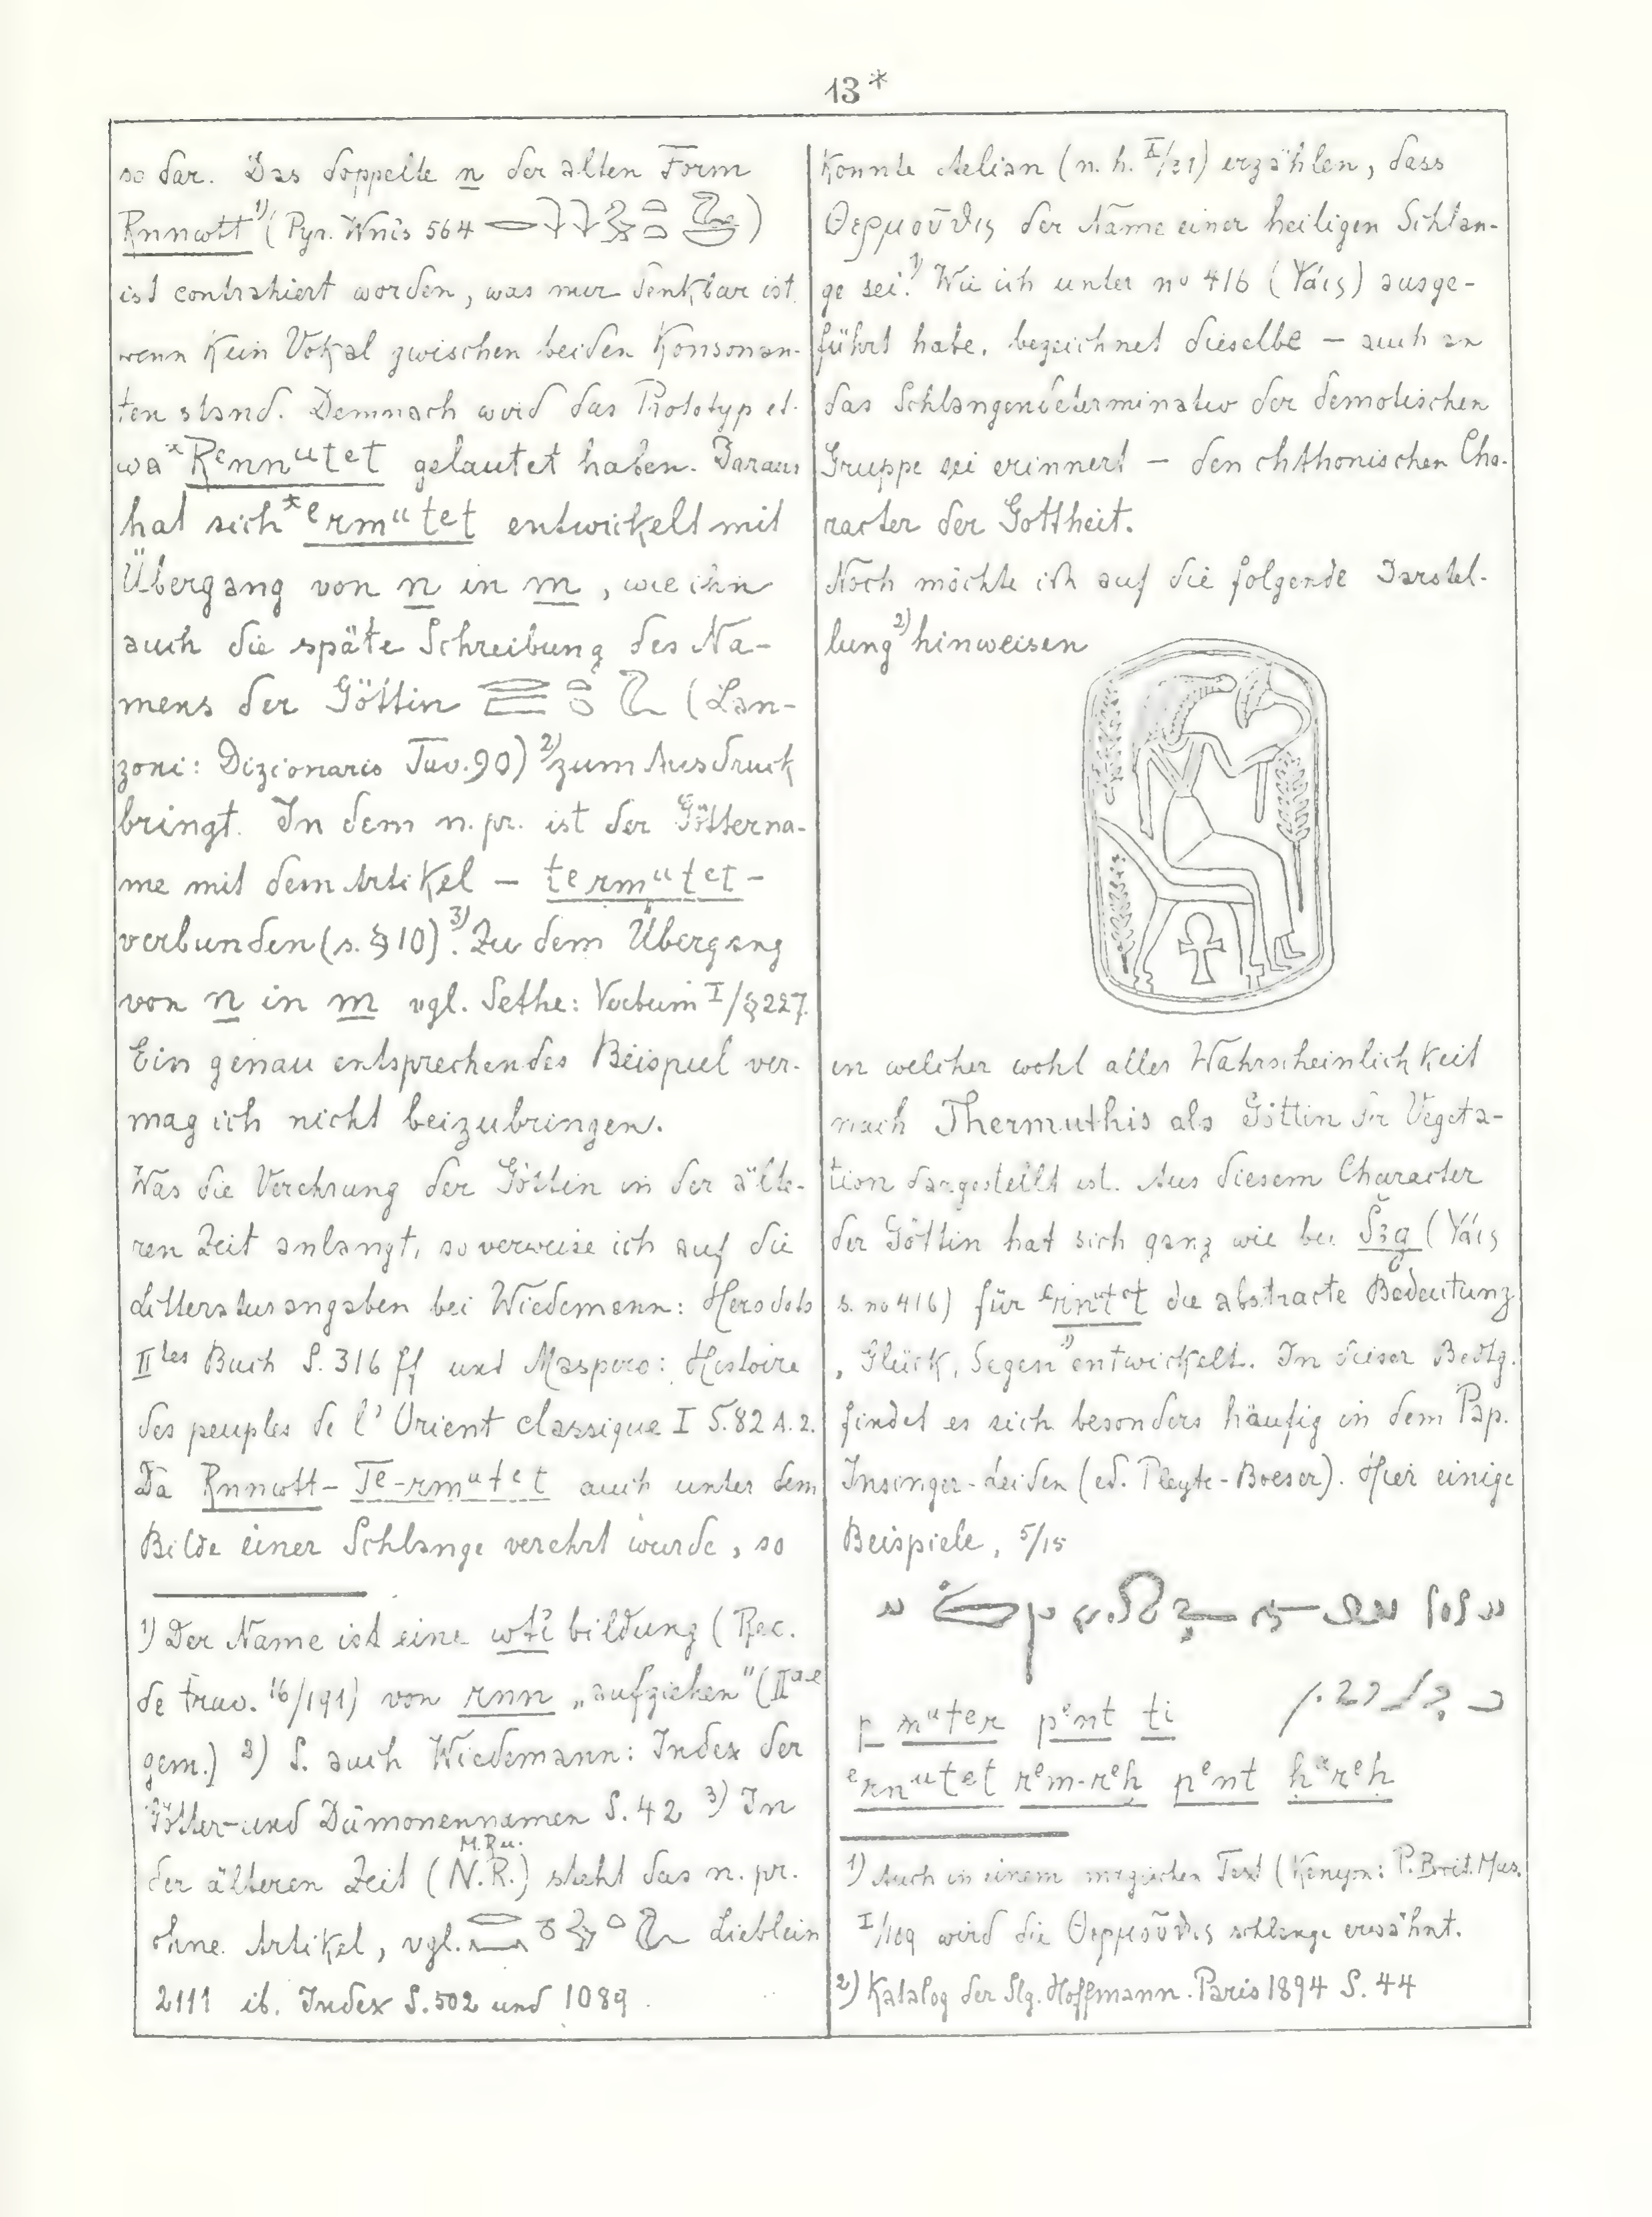 13*
so dar. Das doppelte n der alten Form
Rnnwtt ¹) (Pyr. Wnis 564 )
ist contrahiert worden, was nur denkbar ist,
wenn Kein Vokal zwischen beiden Konsonan-
ten stand. Demnach wird das Prototyp et-
wa *Rᵉnnᵘtᵉt gelautet haben. Daraus
hat sich *ᵉrmᵘtet entwickelt mit
Übergang von n in m, wie ihn
auch die späte Schreibung des Na-
mens der Göttin (Lan-
zoni: Dizionario Tav. 90) ²) zum Ausdruck
bringt. In dem n. pr. ist der Götterna-
me mit dem Artikel – tᵉrmᵘtᵉt –
verbunden (s. § 10) ³). Zu dem Übergang
von n in m vgl. Sethe: Verbum I/§ 227.
Ein genau entsprechendes Beispiel ver-
mag ich nicht beizubringen.
Was die Verehrung der Göttin in der älte-
ren Zeit anlangt, so verweise ich auf die
Litteraturangaben bei Wiedemann: Herodots
IItes Buch S. 316 ff und Maspero: Histoire
des peuples de l'Orient classique I S. 82 A. 2.
Da Rnnwtt – Tᵉ-rmᵘtᵉt auch unter dem
Bilde einer Schlange verehrt wurde, so
1) Der Name ist eine wtï bildung (Rec.
de trav. 16/191) von rnn „aufziehen" (IIae
gem.) 2) S. auch Wiedemann: Index der
Götter- und Dämonennamen S. 42 3) In
M.R u.
der älteren Zeit (N.R.) steht das n. pr.
ohne Artikel, vgl. Lieblein
2111 ib. Index S. 502 und 1089.
Konnte Aelian (n. h. X/31) erzählen, dass
Θερμοῦθις der Name einer heiligen Schlan-
ge sei. ¹) Wie ich unter no 416 (Ψάις) ausge-
führt habe, bezeichnet dieselbe – auch an
das Schlangendeterminativ der demotischen
Gruppe sei erinnert – den chthonischen Cha-
racter der Gottheit.
Noch möchte ich auf die folgende Darstel-
lung ²) hinweisen
in welcher wohl aller Wahrscheinlichkeit
nach Thermuthis als Göttin der Vegeta-
tion dargestellt ist. Aus diesem Character
der Göttin hat sich ganz wie bei (Ψάις
s. no 416) für ᵉrnᵘtᵉt die abstracte Bedeutung
„Glück, Segen" entwickelt. In dieser Bedtg.
findet es sich besonders häufig in dem Pap.
Insinger-Leiden (ed. Pleyte-Boeser). Hier einige
Beispiele, 5/15
p nᵘter pᵉnt ti
ᵉrnᵘtᵉt rᵉm-rᵉḥ pᵉnt ḥᵃrᵉḥ
1) Auch in einem magischen Text (Kenyon: P. Brit. Mus.
I/109 wird die Θερμοῦθις schlange erwähnt.
2) Katalog der Slg. Hoffmann. Paris 1894 S. 44